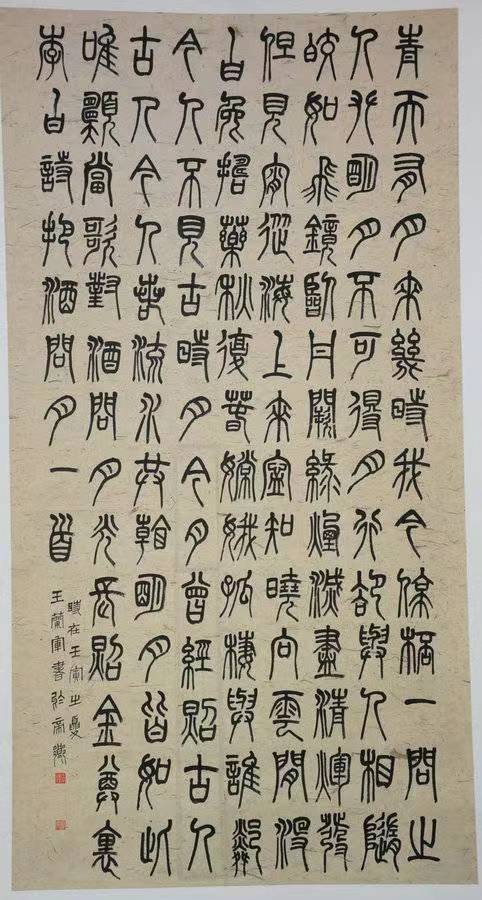 青天有月來幾時我今停杯一問之
人攀明月不可得月行卻與人相隨
皎如飛鏡臨丹闕綠煙滅盡清輝發
但見宵從海上來寧知曉向雲閒沒
白兔擣藥秋復春嫦娥孤棲與誰鄰
今人不見古時月今月曾經照古人
古人今人若流水共看明月皆如此
唯願當歌對酒問月光長照金尊裏
李白詩把酒問月一首
時在壬寅之夏
王蘭軍書於帝